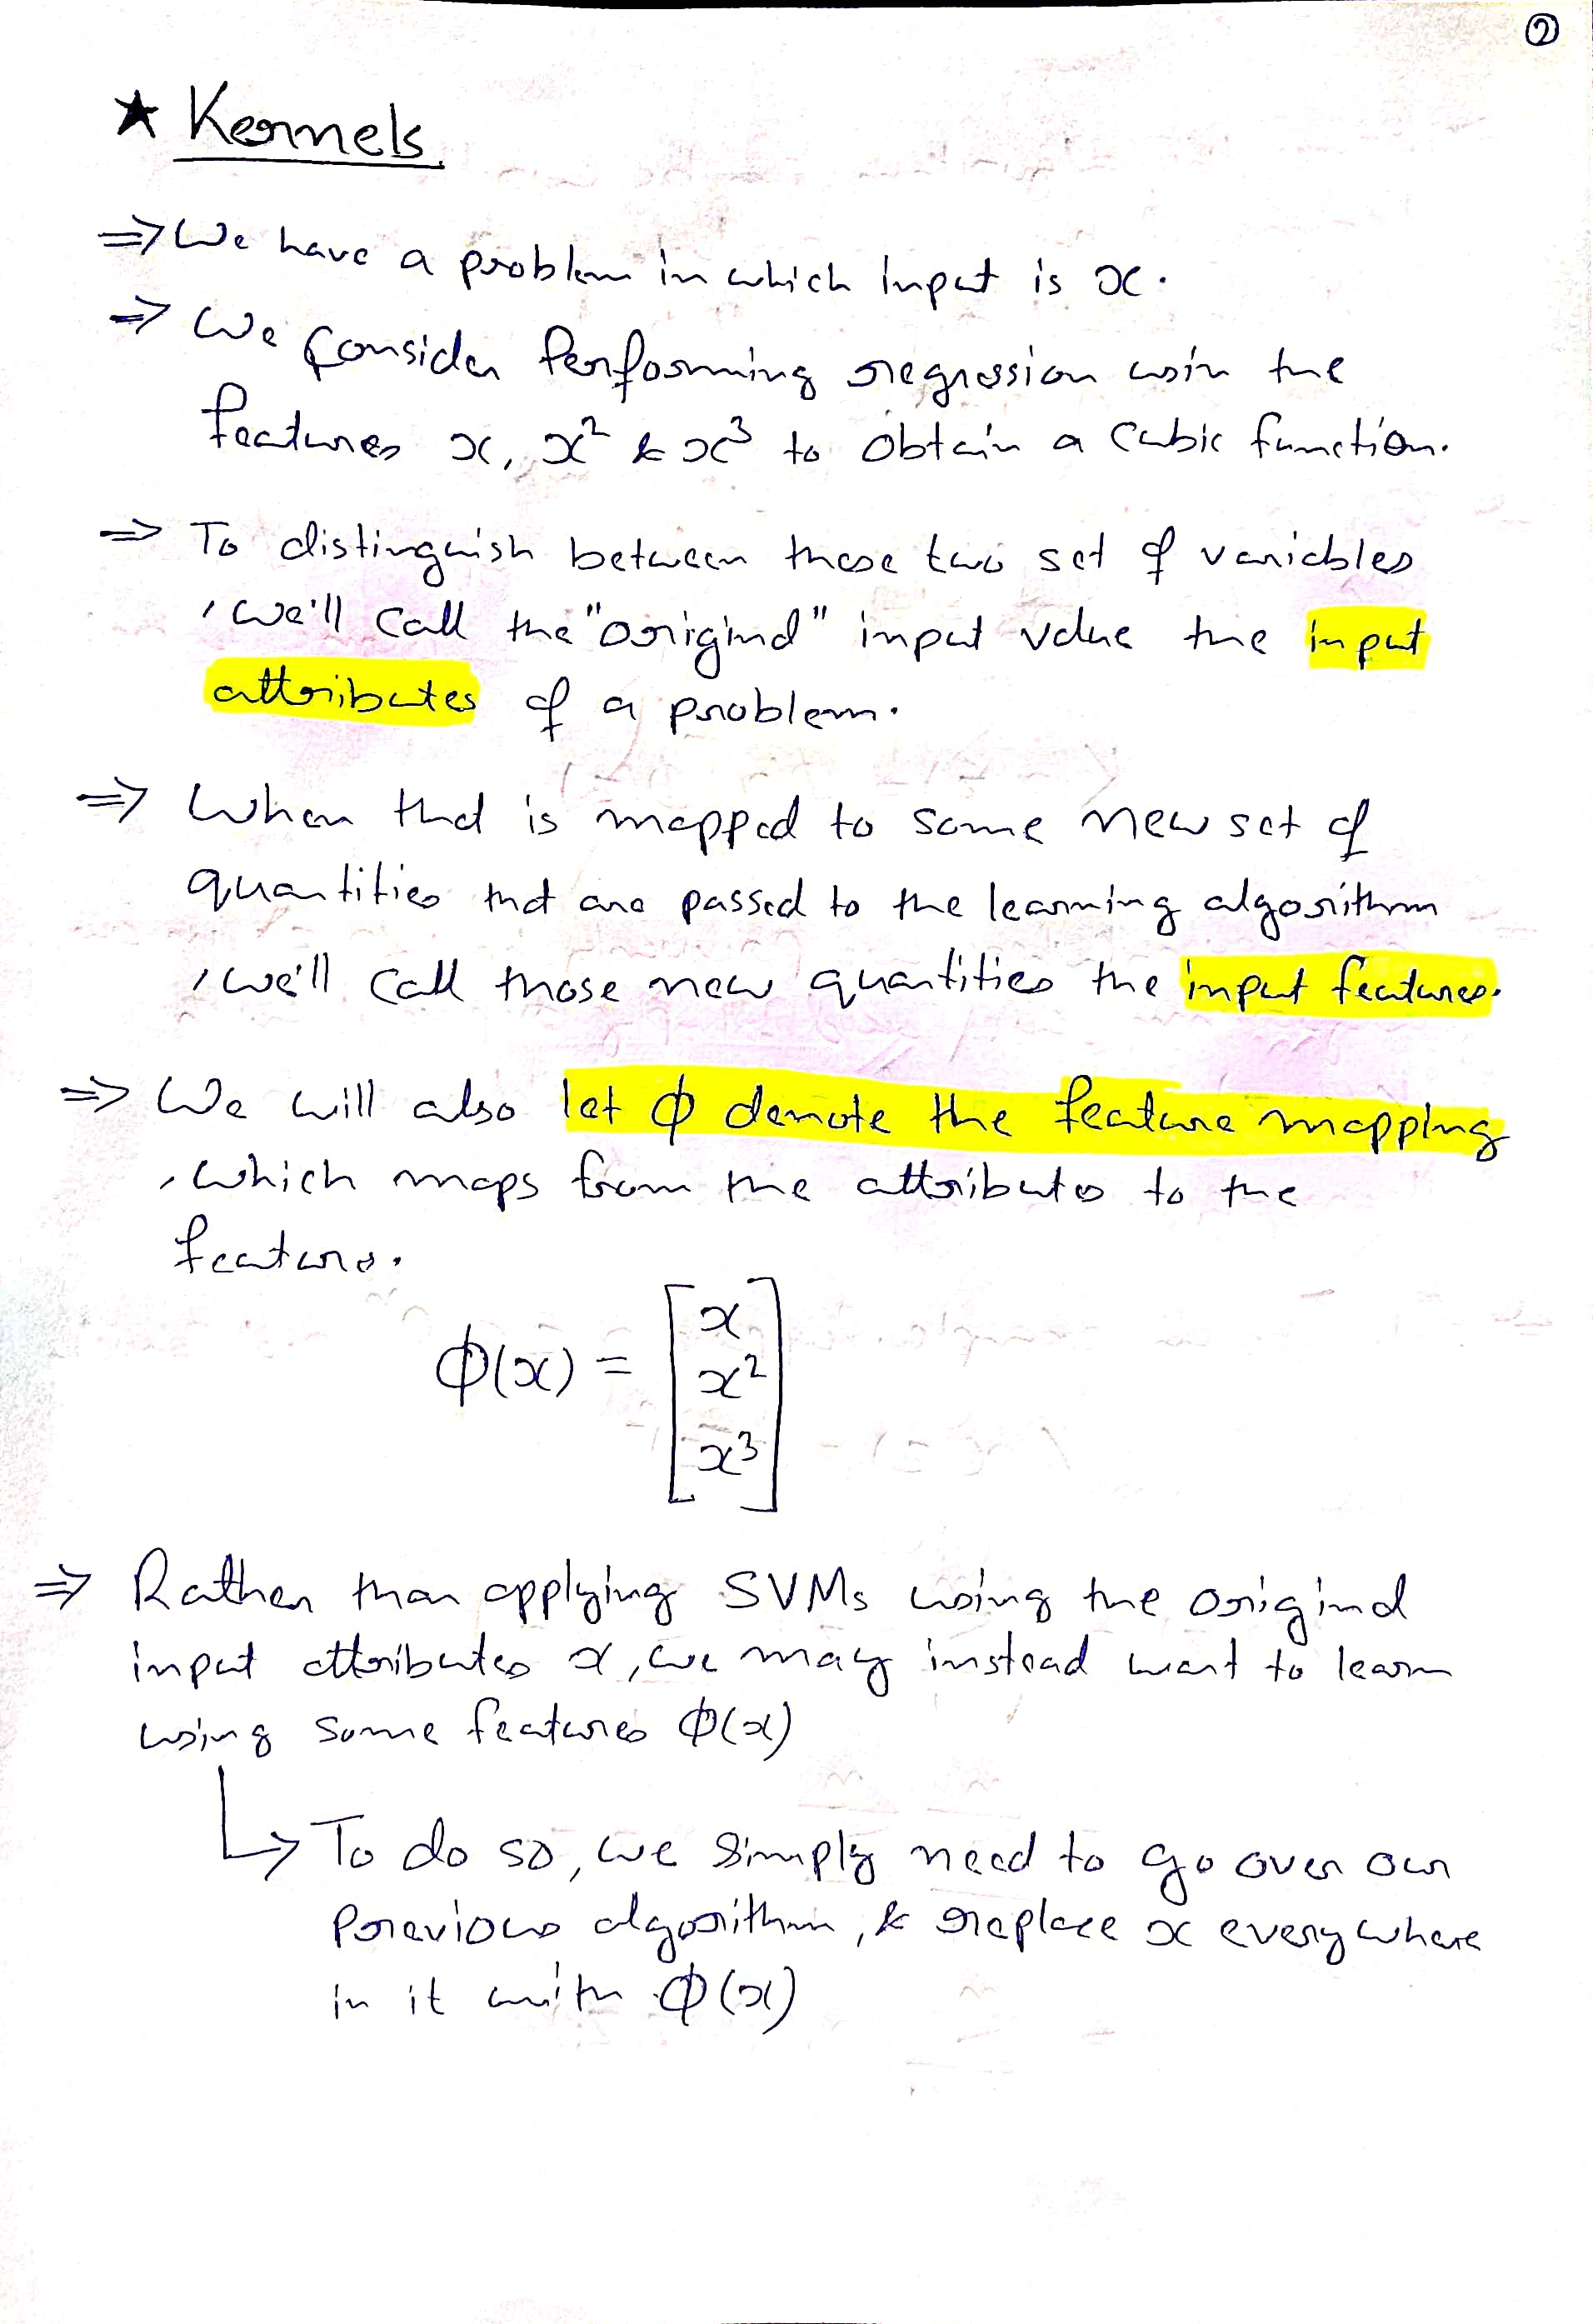 ②
★ Kernels
⇒ We have a problem in which Input is x.
⇒ We consider Performing regression using the
features x, x² & x³ to obtain a cubic function.
⇒ To distinguish between these two set of variables
, we'll call the "original" input value the input
attributes of a problem.
⇒ When that is mapped to some new set of
quantities that are passed to the learning algorithm
, we'll call those new quantities the input features.
⇒ We will also let ϕ denote the feature mapping
, which maps from the attributes to the
features.
ϕ(x) = [x
x²
x³]
⇒ Rather than applying SVMs using the original
input attributes x, we may instead want to learn
using some features ϕ(x)
↳ To do so, we simply need to go over our
Previous algorithm, & replace x everywhere
in it with ϕ(x)